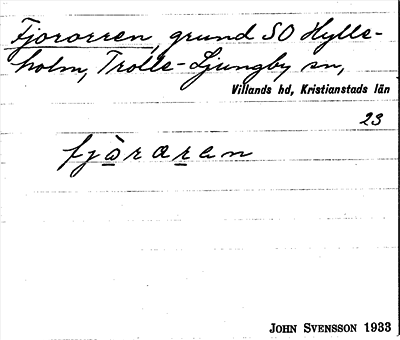 Fjororren, grund SO Hylle-
holm, Trolle-Ljungby sn,
Villands hd, Kristianstads län
23
fjòraran
JOHN SVENSSON 1933